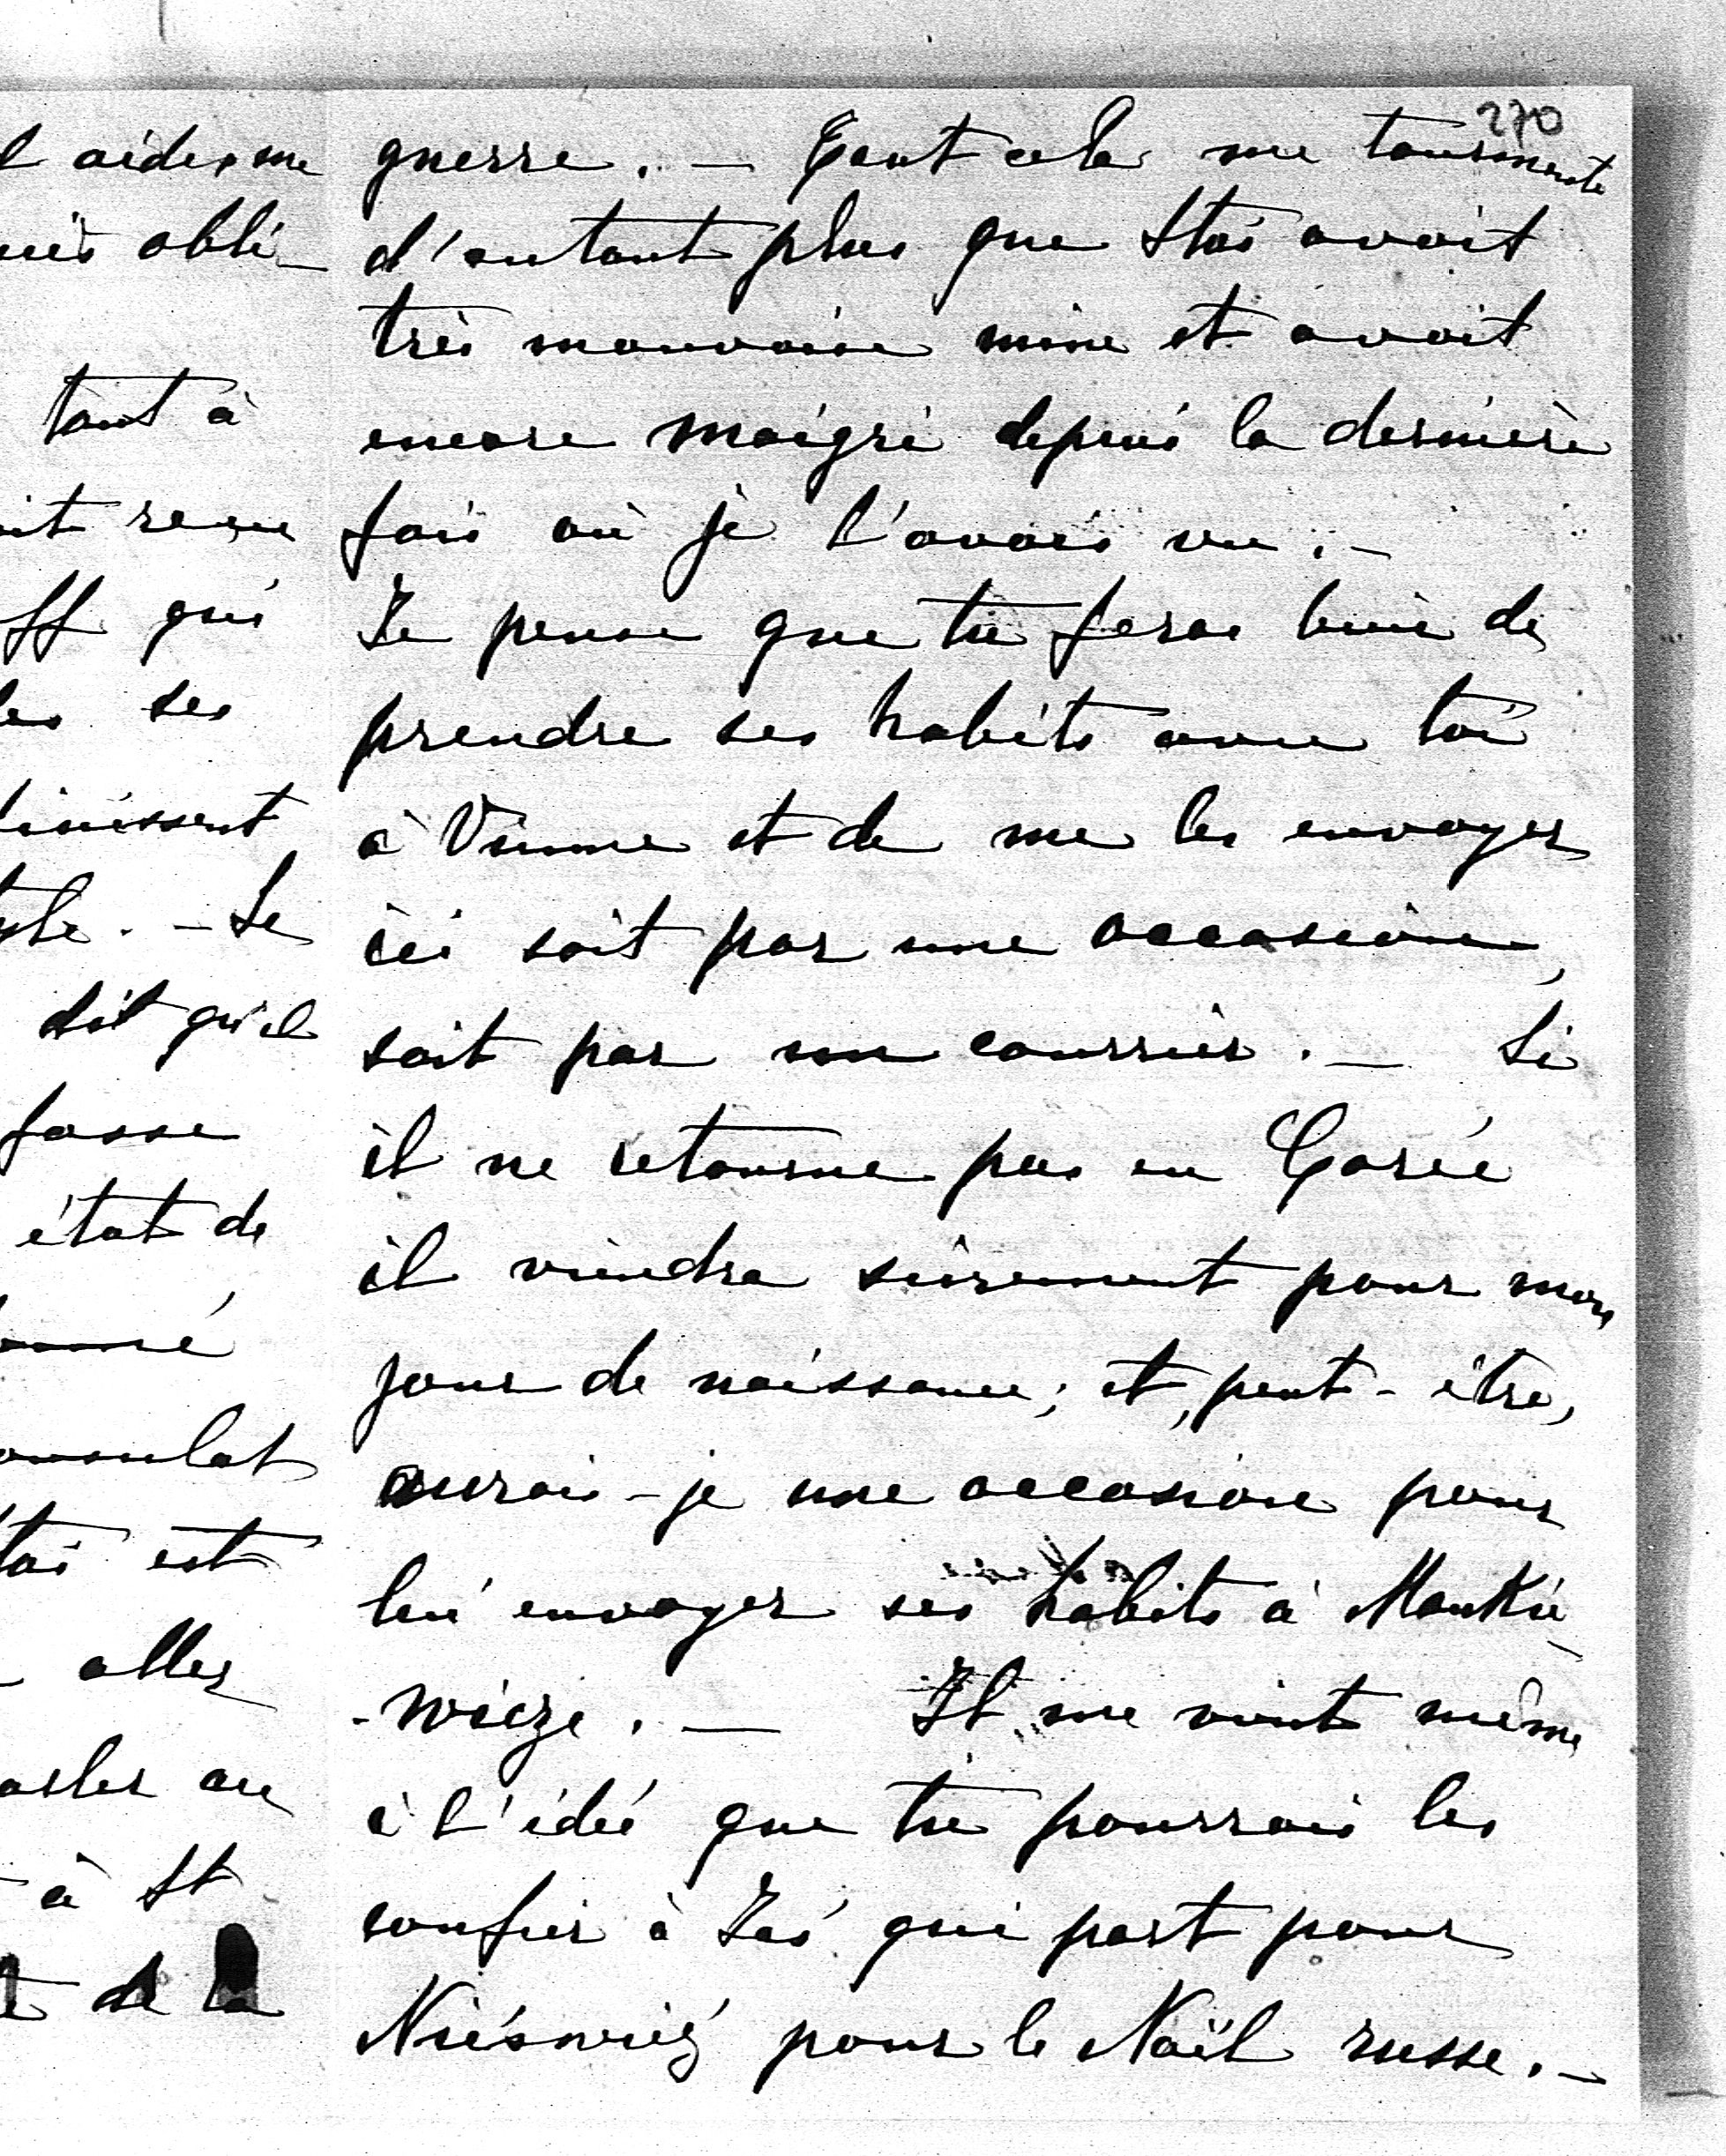 270
l aider, me
suis obli-
tant à
it reçu
ff qui
les ses
finissent
yle. - Le
dit qu'il
fasse
état de
onné
onsulat
taś est
aller
arler au
à St
de la
guerre. — Tout cela me tourmente
d'autant plus que Staś avait
très mauvaise mine et avait
encore maigri depuis la dernière
fois où je l'avais vu. -
Je pense que tu feras bien de
prendre ses habits avec toi
à Vienne et de me les envoyer
ici soit par une occasion,
soit par un courrier. — Si
il ne retourne pas en Corée
il viendra sûrement pour mon
jour de naissance; et, peut-être,
aurais-je une occasion pour
lui envoyer ses habits à Mańkie-
-wicze. — Il me vint même
à l'idée que tu pourrais les
confier à Jaś qui part pour
Nieśwież pour le Noël russe. -